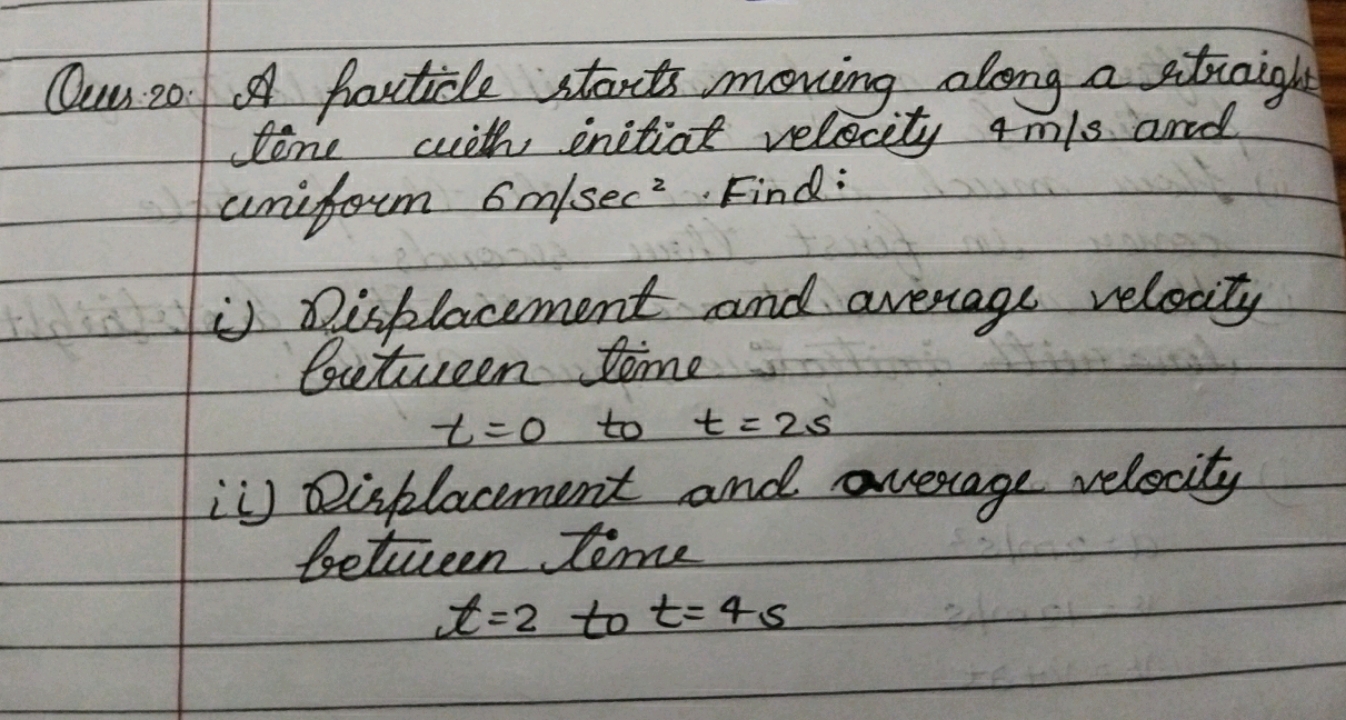 Ques.20. A particle starts moving along a straight
line with initial velocity 4m/s and
uniform 6m/sec². Find:
i) Displacement and average velocity
between time
t=0 to t=2s
ii) Displacement and average velocity
between time
t=2 to t=4s